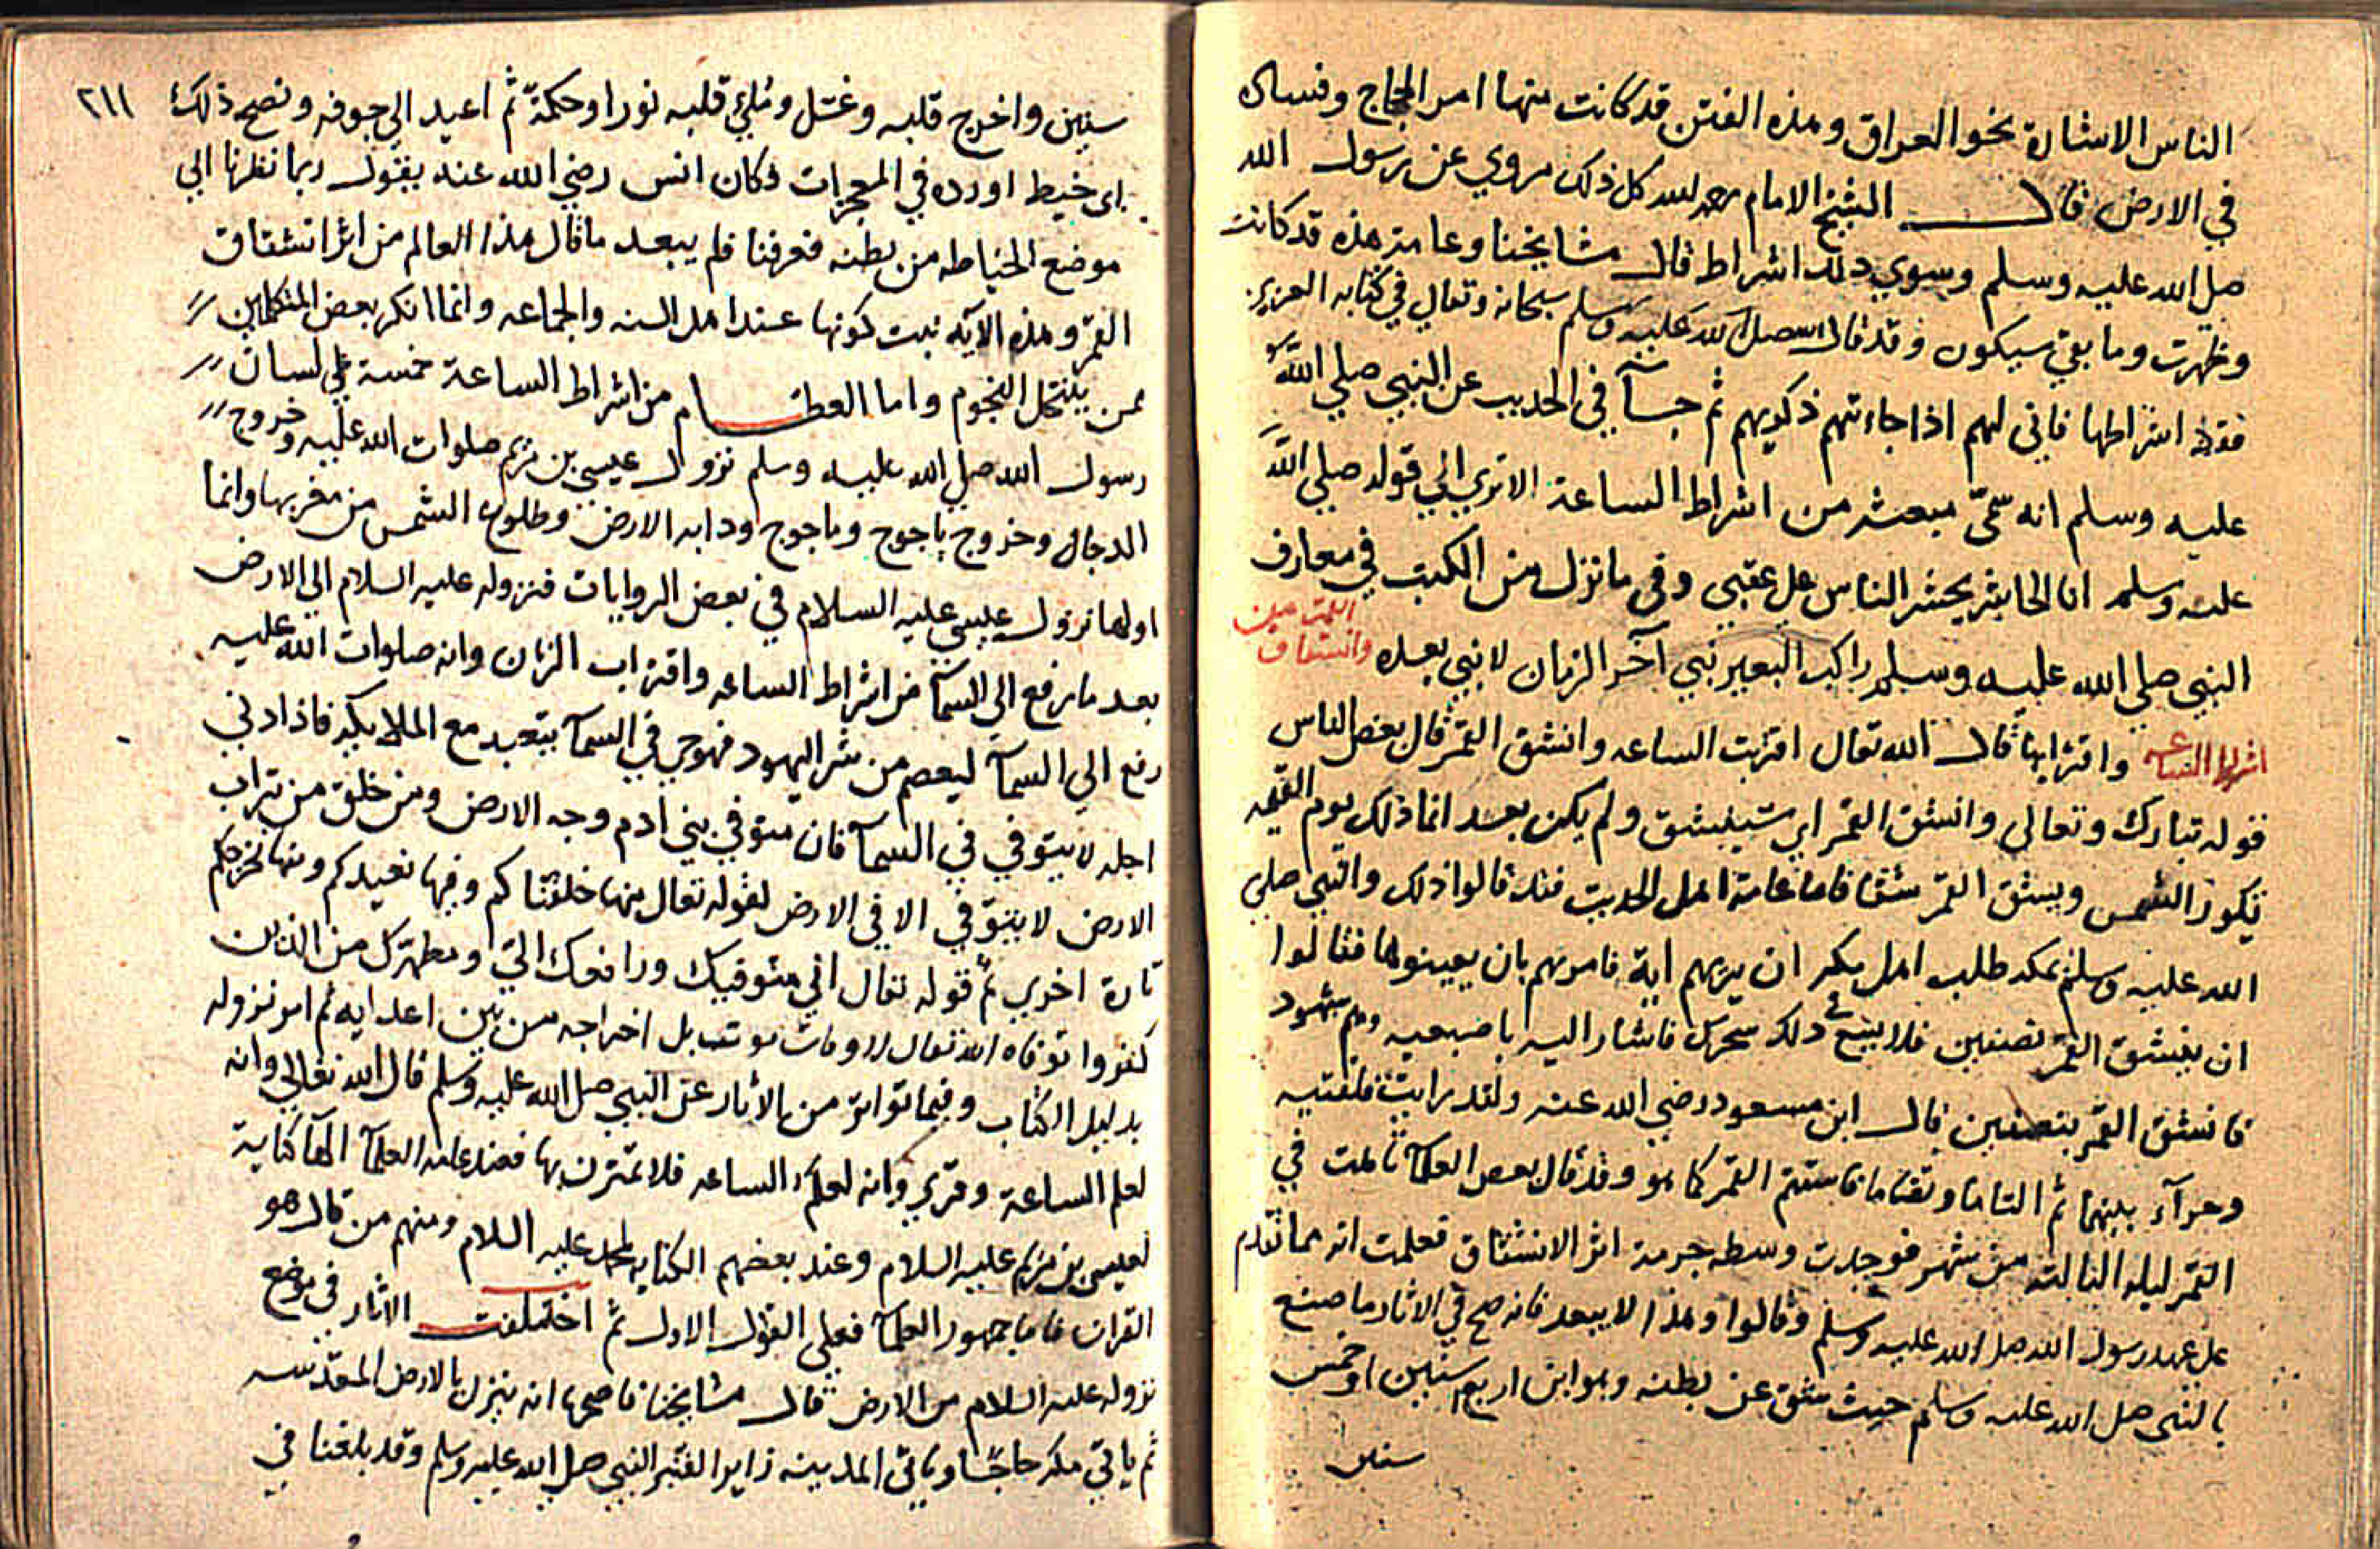 الناس الاشارة نحو العراق وهذه الفتن قد كانت منها امر الحجاج وفساده
في الارض قال الشيخ الامام رحمه الله كل ذلك مروي عن رسول الله
صلى الله عليه وسلم وسوي ذلك اشراط قال مشايخنا وعامة هذه قد كانت
وظهرت وما بقي سيكون وقد قال الله صلى الله عليه وسلم سبحانه وتعالى في كتابه العزيز
فقد اشراطها فاني لهم اذا جاءتهم ذكريهم ثم جآ في الحديث عن النبي صلي الله
عليه وسلم انه سمّى مبعثه من اشراط الساعة الا تري الي قوله صلي الله
عليه وسلم انا الحاشر يحشر الناس على عقبي وفي ما نزل من الكتب في معارف
النبي صلي الله عليه وسلم راكب البعير نبي آخر الزمان لا نبي بعده وانشقاق القمر عين
اشراط الساعة واقترابها قال الله تعالى اقتربت الساعه وانشق القمر قال بعض الناس
قوله تبارك وتعالى وانشق القمر اي سينشق ولم يكن بعد انما ذلك يوم القيمه
تكور الشمس وينشق القمر شقا فاما عامة اهل الحديث فقد قالوا ذلك والنبي صلى
الله عليه وسلم بمكه طلب اهل مكه ان يريهم اية فامرهم بان يعينوها فقالوا
ان ينشق القمر نصفين فلا يبتغ ذلك سحرك فاشار اليه باصبعيه وهم شهود
فانشق القمر بنصفين قال ابن مسعود رضي الله عنه ولقد رايت فلقتيه
وحرآء بينهما ثم التاما وتضاما فاستتم القمر كما هو وقد قال بعض العلمآ تاملت في
القمر ليله الثالثه من شهر فوجدت وسطه جرمة اثر الانشقاق فعلمت انه مما تقدم
على عهد رسول الله صلى الله عليه وسلم وقالوا وهذا لا يبعد فانه صح في الاثار ما صنع
بالنبي صلى الله عليه وسلم حيث شق عن بطنه وهو ابن اربع سنين او خمس
سنين
٢١١
سنين واخرج قلبه وغسل وملئ قلبه نورا وحكمة ثم اعيد الي جوفه ونصح ذلك
باى خيط اورده في المعجزات وكان انس رضي الله عنه يقول ربما نظرنا الي
موضع الخياطه من بطنه فعرفنا فلم يبعد ما قال هذا العالم من اثر انشقاق
القمر وهذه الآيه ثبت كونها عند اهل السنه والجماعه وانما انكر بعض المتكلمين
ممن ينتحل النجوم واما العظام من اشراط الساعة خمسة علي لسان
رسول الله صلى الله عليه وسلم نزول عيسي بن مريم صلوات الله عليه وخروج
الدجال وخروج ياجوج وماجوج ودابه الارض وطلوع الشمس من مغربها وانما
اولها نزول عيسي عليه السلام في بعض الروايات فنزوله عليه السلام الي الارض
بعد ما رفع الي السمآ من اشراط الساعه واقتراب الزمان وانه صلوات الله عليه
رفع الي السمآ ليعصم من شر اليهود فهو حي في السمآ يتعبد مع الملايكه فاذا دني
اجله لا يتوفي في السمآ فان متوفي بني ادم وجه الارض ومن خلق من تراب
الارض لا يتوفي الا في الارض لقوله تعالى منها خلقناكم وفيها نعيدكم ومنها نخرجكم
تارة اخري ثم قوله تعالى اني متوفيك ورافعك الي ومطهرك من الذين
كفروا توفاه الله تعالى لا وفات موت بل اخراجه من بين اعدايه ثم امر نزوله
بدليل الكتاب وفيما تواتر من الاثار عن النبي صلى الله عليه وسلم قال الله تعالي وانه
لعلم الساعة وقري وانه لعلم الساعه فلا تمترن بها فعند عامه العلمآ الهآ كناية
لعيسى بن مريم عليه السلام وعند بعضهم الكنايه لمحمد عليه السلام ومنهم من قال هو
القران فاما جمهور العلمآ فعلي القول الاول ثم اختلفت الاثار في موضع
نزوله عليه السلام من الارض قال مشايخنا فاصحها انه ينزل بالارض المقدسه
ثم ياتي مكه حاجّا وياتي المدينه زايرا لقبر النبي صلى الله عليه وسلم وقد بلغنا في